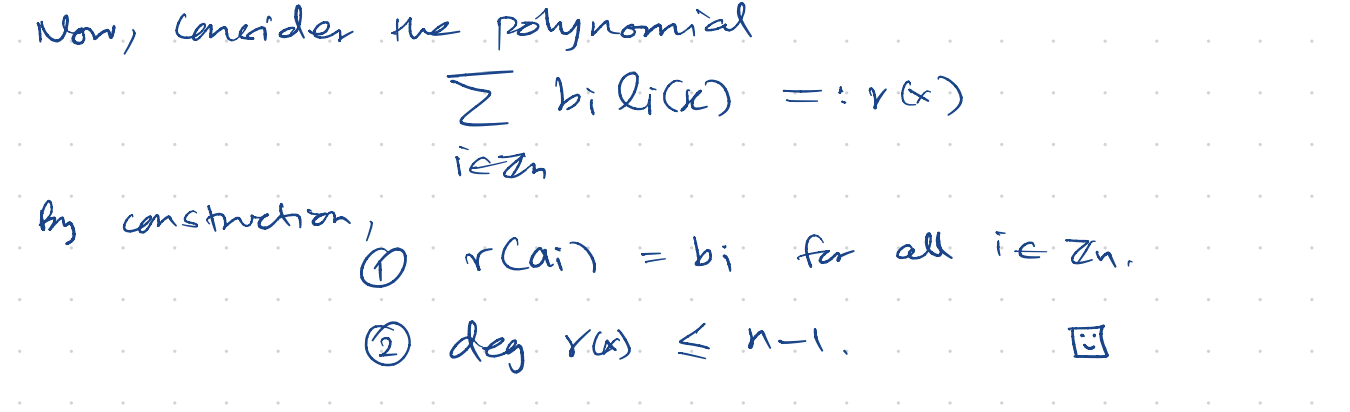 Now, consider the polynomial
∑ bi li(x) =: r(x)
i∈Zn
By construction,
① r(ai) = bi for all i ∈ Zn.
② deg r(x) ≤ n-1.